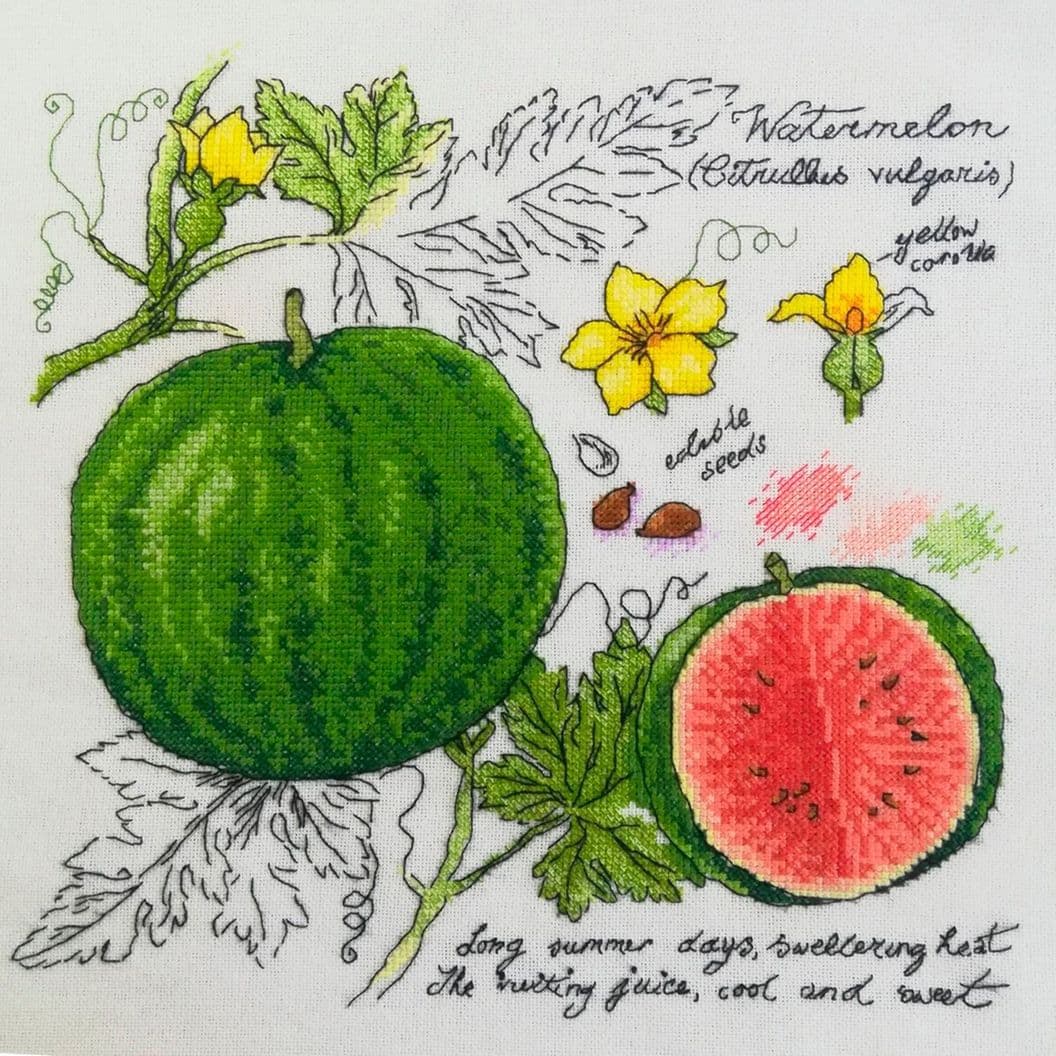 Watermelon
(Citrullus vulgaris)
yellow
corolla
edible
seeds
Long summer days, sweltering heat
The inviting juice, cool and sweet